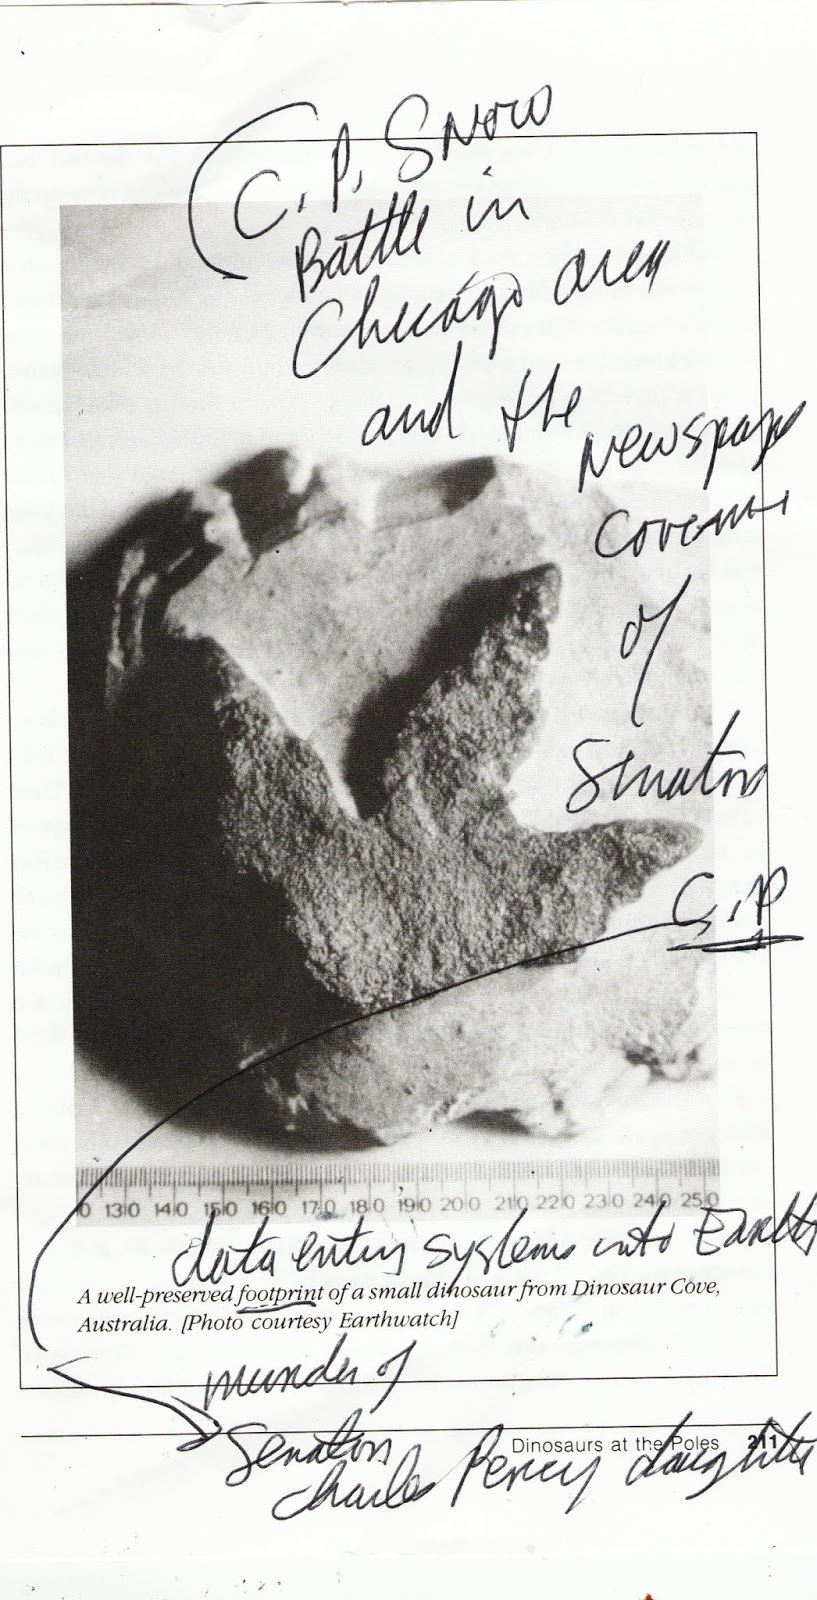 C. P. Snow
Battle in
Chicago area
and the
newspaper
coverage
of
Senator
C. P
0 130 140 150 160 170 180 190 200 210 220 230 240 250
data entry systems into Earth
A well-preserved footprint of a small dinosaur from Dinosaur Cove,
Australia. [Photo courtesy Earthwatch]
murder of
Senator
Dinosaurs at the Poles 211
Charles Percy daughter